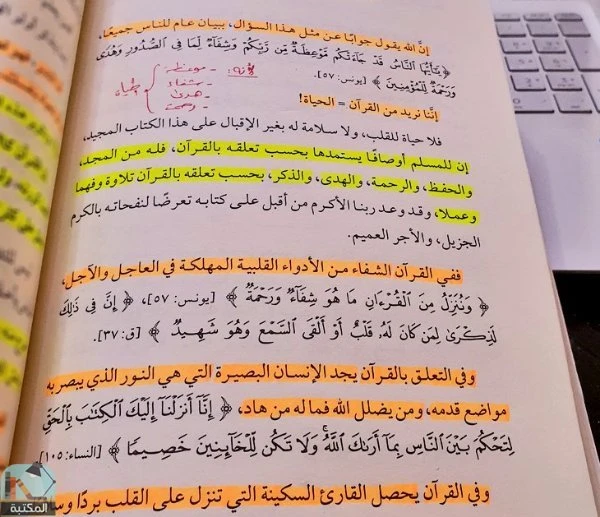 إنَّ الله يقول جوابًا عن مثل هذا السؤال، ببيان عام للناس جميعًا،
﴿ يَٰٓأَيُّهَا ٱلنَّاسُ قَدْ جَآءَتْكُم مَّوْعِظَةٌ مِّن رَّبِّكُمْ وَشِفَآءٌ لِّمَا فِى ٱلصُّدُورِ وَهُدًى
وَرَحْمَةٌ لِّلْمُؤْمِنِينَ ﴾ [يونس: ٥٧].
- موعظة
- شفاء
- هدى
- رحمة
إنَّنا نريد من القرآن = الحياة!
فلا حياة للقلب، ولا سلامة له بغير الإقبال على هذا الكتاب المجيد،
إن للمسلم أوصافًا يستمدها بحسب تعلقه بالقرآن، فله من المجد،
والحفظ، والرحمة، والهدى، والذكر، بحسب تعلقه بالقرآن تلاوة وفهما
وعملا، وقد وعد ربنا الأكرم من أقبل على كتابه تعرضًا لنفحاته بالكرم
الجزيل، والأجر العميم.
ففي القرآن الشفاء من الأدواء القلبية المهلكة في العاجل والآجل،
﴿ وَنُنَزِّلُ مِنَ ٱلْقُرْءَانِ مَا هُوَ شِفَآءٌ وَرَحْمَةٌ ﴾ [يونس: ٥٧]، ﴿ إِنَّ فِى ذَٰلِكَ
لَذِكْرَىٰ لِمَن كَانَ لَهُۥ قَلْبٌ أَوْ أَلْقَى ٱلسَّمْعَ وَهُوَ شَهِيدٌ ﴾ [ق: ٣٧].
وفي التعلق بالقرآن يجد الإنسان البصيرة التي هي النور الذي يبصر به
مواضع قدمه، ومن يضلل الله فما له من هاد، ﴿ إِنَّآ أَنزَلْنَآ إِلَيْكَ ٱلْكِتَٰبَ بِٱلْحَقِّ
لِتَحْكُمَ بَيْنَ ٱلنَّاسِ بِمَآ أَرَىٰكَ ٱللَّهُ وَلَا تَكُن لِّلْخَآئِنِينَ خَصِيمًا ﴾ [النساء: ١٠٥]
وفي القرآن يحصل القارئ السكينة التي تنزل على القلب بردًا
المكتبة